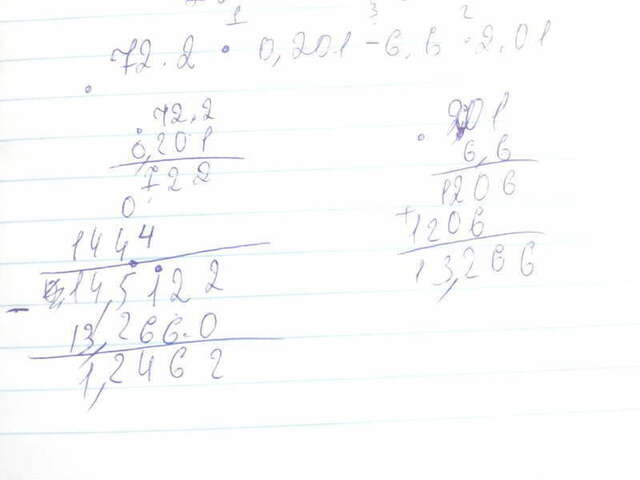 1 3 2
72.2 · 0,201 - 6,6 · 2,01
72,2
0,201
722
0
1444
14,5122
- 13,266.0
1,2462
201
6,6
1206
+ 1206
13,266